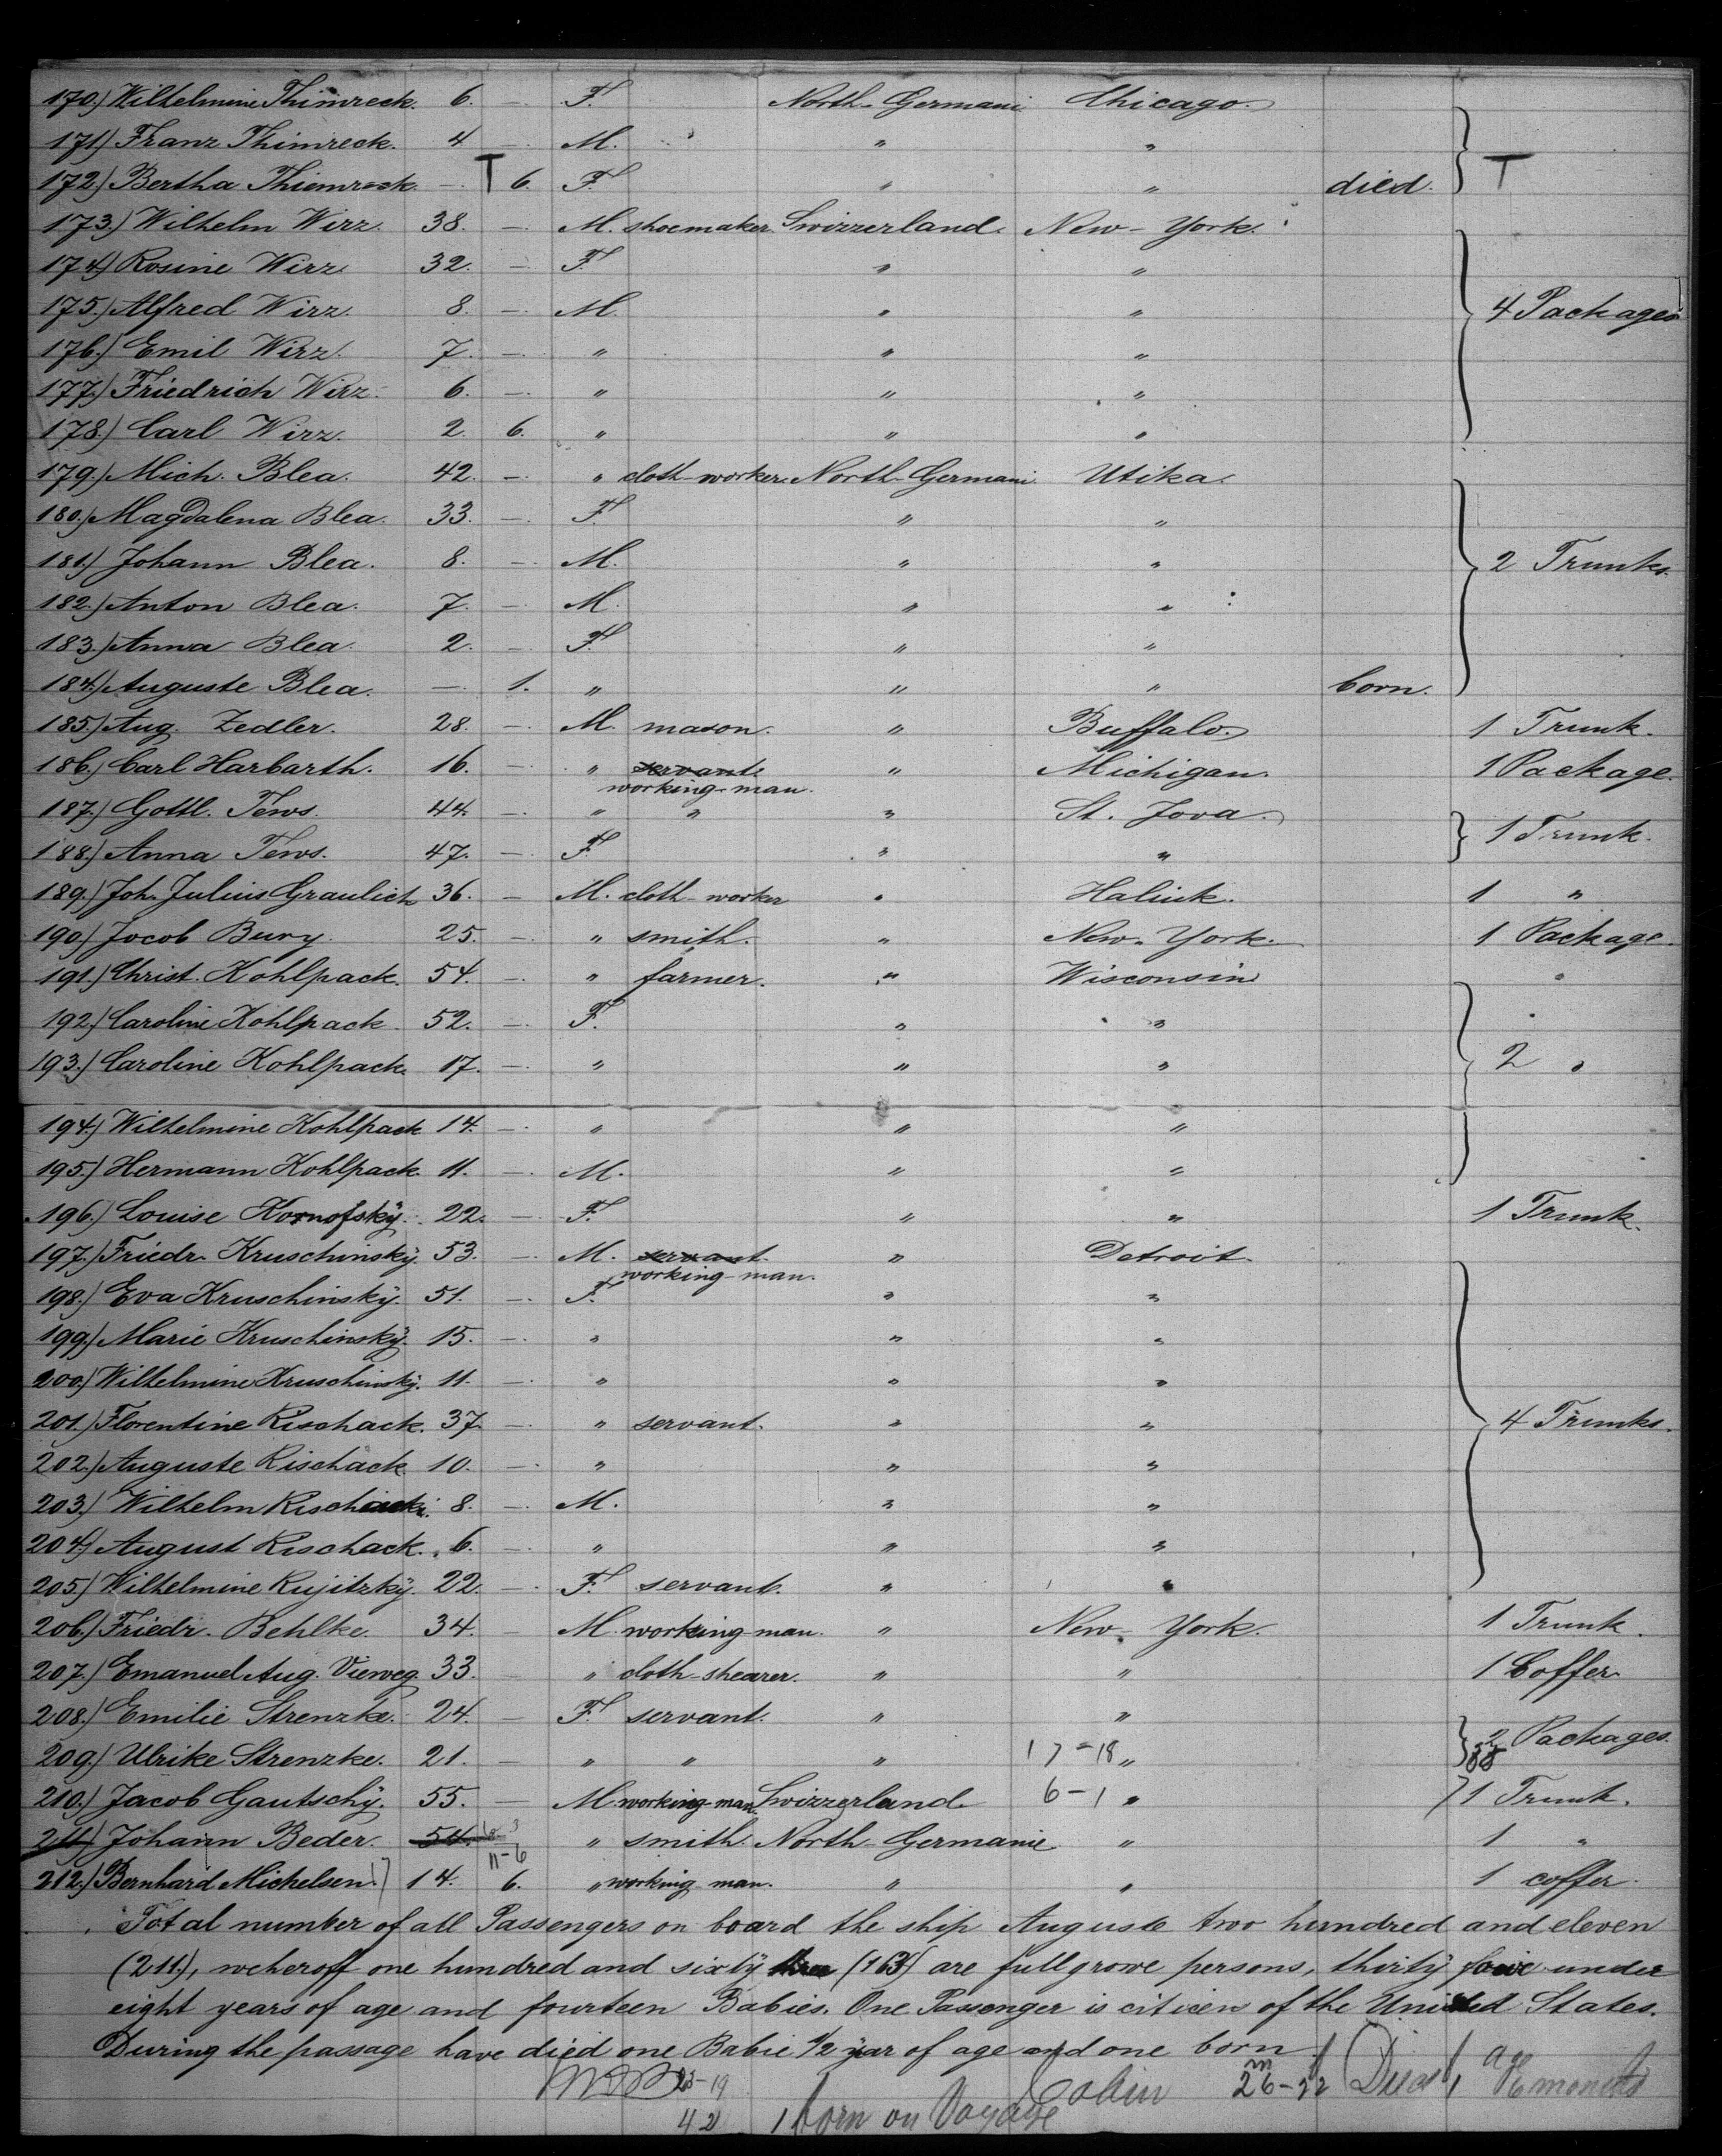 170.) Wilhelmine Thimreck. 6. — F. North-Germani Chicago.
171) Franz Thimreck. 4 — M. " "
172) Bertha Thiemreck — T 6. F. " " died. T
173.) Wilhelm Wirz. 38. — M. shoemaker. Swizzerland. New-York.
174) Rosine Wirz 32. — F. " "
175.) Alfred Wirz. 8. — M. " " 4 Packages
176.) Emil Wirz. 7. — " " "
177.) Friedrich Wirz 6. — " " "
178.) Carl Wirz. 2. 6. " " "
179.) Mich. Blea. 42. — " cloth-worker. North-Germani Utika.
180.) Magdalena Blea. 33. — F. " "
181.) Johann Blea. 8. — M. " " 2 Trunks.
182.) Anton Blea. 7. — M. " "
183.) Anna Blea 2. — F. " "
184.) Auguste Blea. — 1. " " " born.
185.) Aug. Zedler. 28. — M. mason. " Buffalo. 1 Trunk.
186.) Carl Harbarth. 16. — " servant. " Michigan. 1 Package.
working-man.
187.) Gottl. Tews. 44. — " " " St. Jova.
188.) Anna Tews. 47. — F. " " 1 Trunk.
189.) Joh. Julius Graulich 36. — M. cloth-worker " 1 "
190.) Jocob Bury. 25. — " smith. " New-York. 1 Package.
191.) Christ. Kohlpack. 54. — " farmer. " Wisconsin "
192.) Caroline Kohlpack 52. — F. " " "
193.) Caroline Kohlpack. 17. — " " " 2 "
194.) Wilhelmine Kohlpack 14. — " " "
195.) Hermann Kohlpack. 11. — M. " "
196.) Louise Kornofskÿ. 22. — F. " " 1 Trunk.
197.) Friedr. Kruschinskÿ. 53. — M. servant. " Detroit.
working-man.
198.) Eva Kruschinskÿ. 51. — F. " "
199.) Marie Kruschinskÿ. 15. — " " "
200.) Wilhelmine Kruschinskÿ. 11. — " " "
201.) Florentine Rischack. 37. — " servant. " " 4 Trunks.
202.) Auguste Rischack 10. — " " "
203.) Wilhelm Rischack. 8. — M. " "
204.) August Rischack. 6. — " " "
205.) Wilhelmine Rujitzkÿ. 22. — F. servant. " "
206.) Friedr. Behlke. 34. — M. working-man. " New-York. 1 Trunk.
207.) Emanuel Aug. Vieweg 33. — " cloth-shearer. " " 1 Coffer.
208.) Emilie Strenzke. 24. — F. servant. " "
209.) Ulrike Strenzke. 21. — " " " 17-18 " 2 Packages.
210.) Jacob Gautschÿ. 55. — M. working-man. Swizzerland 6-1 " 1 Trunk.
211.) Johann Beder. 54. " smith. North-Germanie " 1 "
11-6
212.) Bernhard Michelsen. 14. 6. " working man. " " 1 coffer.
Total number of all Passengers on board the ship Auguste two hundred and eleven
(211.), wheroff one hundred and sixty three (163) are fullgrowe persons, thirty under
eight years of age and fourteen Babies. One Passenger is citizen of the United States.
During the passage have died one Babie 1/2 year of age and one born.
23-19 26-22 Died 1 age 6 months
42 1 born on Voyage